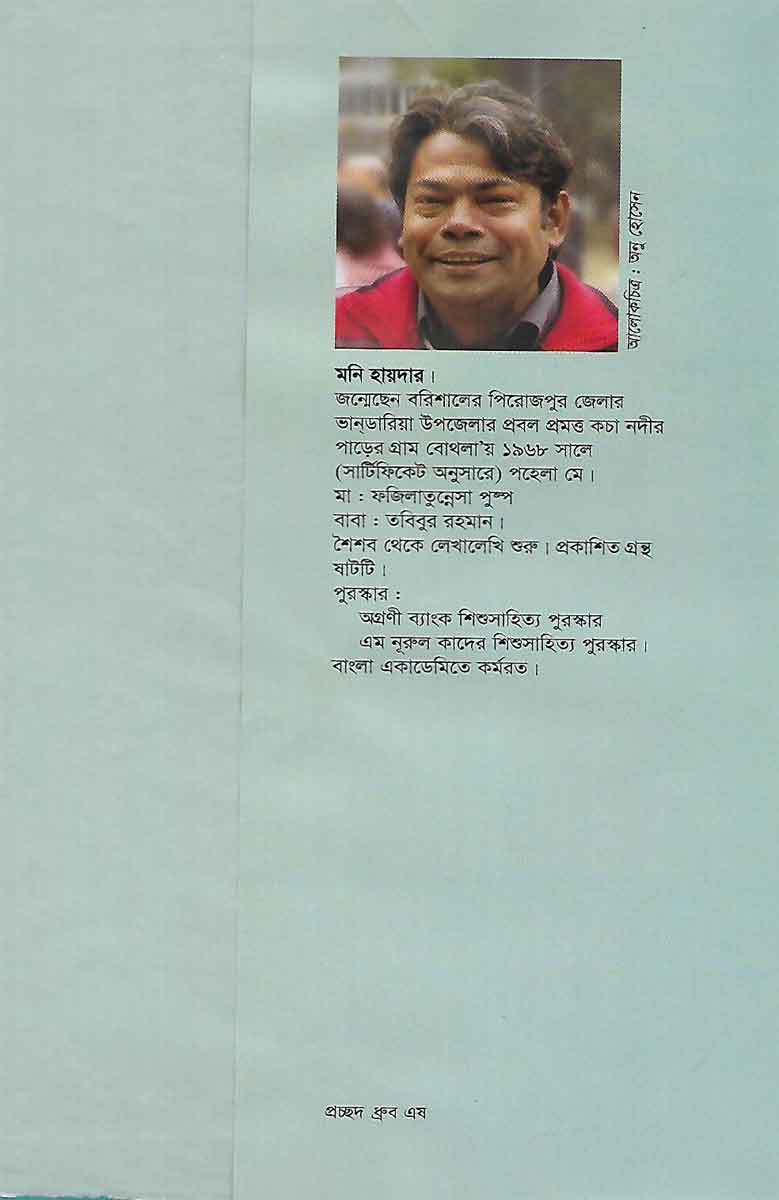 আলোকচিত্র : অনু হোসেন
মনি হায়দার।
জন্মেছেন বরিশালের পিরোজপুর জেলার
ভান্ডারিয়া উপজেলার প্রবল প্রমত্ত কচা নদীর
পাড়ের গ্রাম বোথলা'য় ১৯৬৮ সালে
(সার্টিফিকেট অনুসারে) পহেলা মে।
মা : ফজিলাতুন্নেসা পুষ্প
বাবা : তবিবুর রহমান।
শৈশব থেকে লেখালেখি শুরু। প্রকাশিত গ্রন্থ
ষাটটি।
পুরস্কার :
অগ্রণী ব্যাংক শিশুসাহিত্য পুরস্কার
এম নূরুল কাদের শিশুসাহিত্য পুরস্কার।
বাংলা একাডেমিতে কর্মরত।
প্রচ্ছদ ধ্রুব এষ